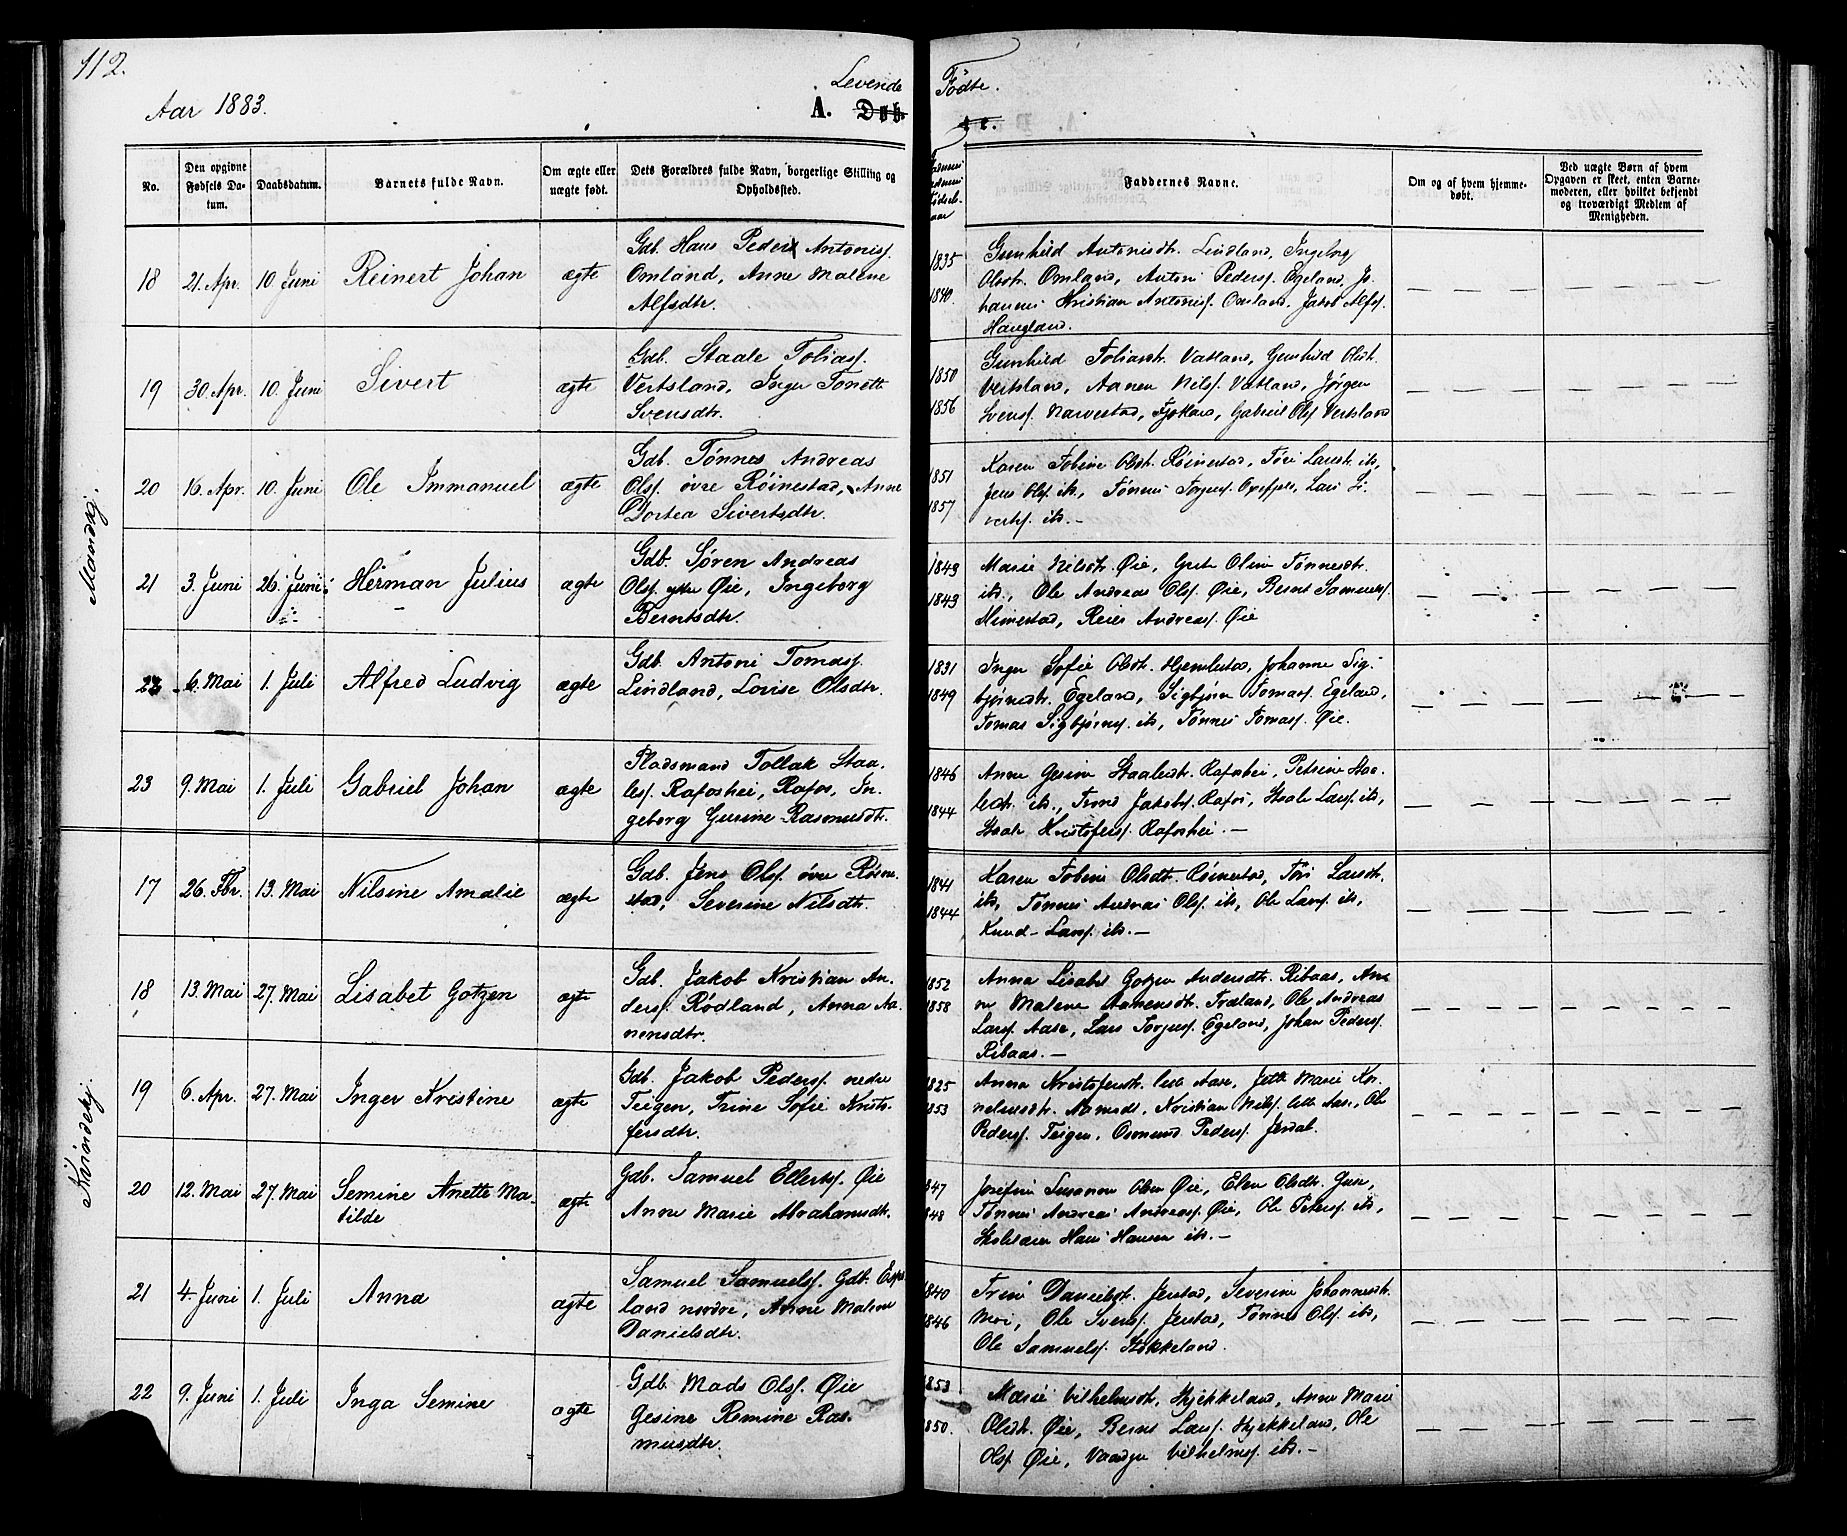 112.
Aar 1883.
Levende Fødte.
A. Døbte.
No.
Den opgivne Fødsels Datum.
Daabsdatum.
Barnets fulde Navn.
Om ægte eller uægte født.
Dets Forældres fulde Navn, borgerlige Stilling og Opholdssted.
Faddernes Navne.
Om og af hvem hjemmedøbt.
Ved uægte Børn af hvem Opgaven er skeet, enten Barnemoderen, eller hvilket bekjendt og troværdigt Medlem af Menigheden.
Mandkj.
18 21. Apr. 10 Juni Reinert Johan ægte
Gdb. Hans Peder Antonisf.
Omland, Anne Malene
Alfsdtr.
1835
1840.
Gunhild Antonisdtr. Lindland, Ingebrg
Olsdtr. Omland, Antoni Pedersf. Egeland, Jo-
hannes Kristian Antonisf. Omland, Jakob Alfsf.
Haugland.
19 30. Apr. 10 Juni Sivert ægte
Gdb. Staale Tobiasf.
Vertsland, Inger Tonette
Svensdtr.
1850
1856
Gunhild Tobiasdtr. Vatland, Gunhild Olsdtr.
Vertsland, Aanen Nilsf. Vatland, Jørgen
Svensf. Narvestad, Gabriel Olsf. Vertsland
20 16. Apr. 10 Juni Ole Immanuel ægte
Gdb. Tønnes Andreas
Olsf. øvre Røinestad, Anne
Dortea Sivertsdtr.
1851
1857
Karen Tobine Olsdtr. Røinestad, Tóri Larsdtr. ibd,
Jens Olsf. ibd, Tønnes Torjusf. Lars Si-
vertsf. ibd.—
21 3. Juni 26. Juni Herman Julius ægte
Gdb. Søren Andreas
Olsf. ytre Øie, Ingeborg
Berntsdtr.
1849
1843
Marie Nilsdtr. Øie, Grete Oline Tønnesdtr.
ibd., Ole Andreas Olsf. Øie, Bernt Samuelsf.
Himestad, Reier Andreasf. Øie
22 6. Mai 1. Juli Alfred Ludvig ægte
Gdb. Antoni Tomasf.
Lindland, Lovise Olsdtr.
1831
1849
Inger Sofie Olsdtr. Hjemlestad, Johanne Sig-
bjørnsdtr. Egeland, Sigbjørn Tomasf. Egeland,
Tomas Sigbjørnsf. ibd, Tønnes Tomasf. Øie.
23 9. Mai 1. Juli Gabriel Johan ægte
Pladsmand Tollak Staa-
lesf. Rafoshei, Rafos, In-
geborg Gurine Rasmusdtr.
1846
1844
Anne Gesine Staalesdtr. Rafoshei, Petrine Staa-
lesdtr. ibd., Trond Jakobsf. Rafos, Staale Larsf. ibd,
Staale Kristofersf. Rafoshei.—
Kvindekj.
17 26. Fbr. 13. Mai Nilsine Amalie ægte
Gdb. Jens Olsf. øvre Røine-
stad, Severine Nilsdtr.
1841
1844
Karen Tobine Olsdtr. Røinestad, Tóri Larsdtr.
ibd, Tønnes Andreas Olsf. ibd, Ole Larsf. ibd,
Knud Larsf. ibd.—
18 13. Mai 27. Mai Lisabet Gotzen ægte
Gdb. Jakob Kristian An-
dersf. Rødland, Anna Aa-
nensdtr.
1852
1858
Anna Lisabet Gotzen Andersdtr. Ribaas, An-
ne Malene Aanensdtr. Træland, Ole Andreas
Larsf. Aase, Lars Torjusf. Egeland, Johan Pedersf.
Ribaas.—
19 6. Apr. 27. Mai Inger Kristine ægte
Gdb. Jakob Pedersf. nedre
Teigen, Trine Sofie Kristo-
fersdtr.
1825
1853
Anna Kristofersdtr. lille Aase, Jette Marie Kor-
neliusdtr. Aamodt, Kristian Nilsf. lille Aase, Ole
Pedersf. Teigen, Osmund Pedersf. Jerdal.
20 12. Mai 27. Mai Semine Anette Ma-
tilde ægte
Gdb. Samuel Ellertsf. Øie
Anne Marie Abrahamsdtr.
1847
1848
Josefine Susanne Olsen Øie, Elen Olsdtr. Guse,
Tønnes Andreas Andreasf. Øie, Ole Petersf. ibd,
Skolelærer Hans Hansen ibd.—
21 4. Juni 1. Juli Anna ægte
Samuel Samuelsf. Gdb.
land nordre, Anne Malene
Danielsdtr.
1840
1846
Trine Danielsdtr. Jerstad, Severine Johannesdtr.
Moi, Ole Svensf. Jerstad, Tønnes Olsf. ibd,
Ole Samuelsf. Stokkeland.
22 9. Juni 1. Juli Inga Semine ægte
Gdb. Mads Olsf. Øie
Gesine Remine Ras-
musdtr.
1853
1850.
Marie Vilhelmsdtr. Hjekkeland, Anne Marie
Olsdtr. Øie, Bernt Larsf. Hjekkeland, Ole
Olsf Øie, Vilhelmsf. ibd.—